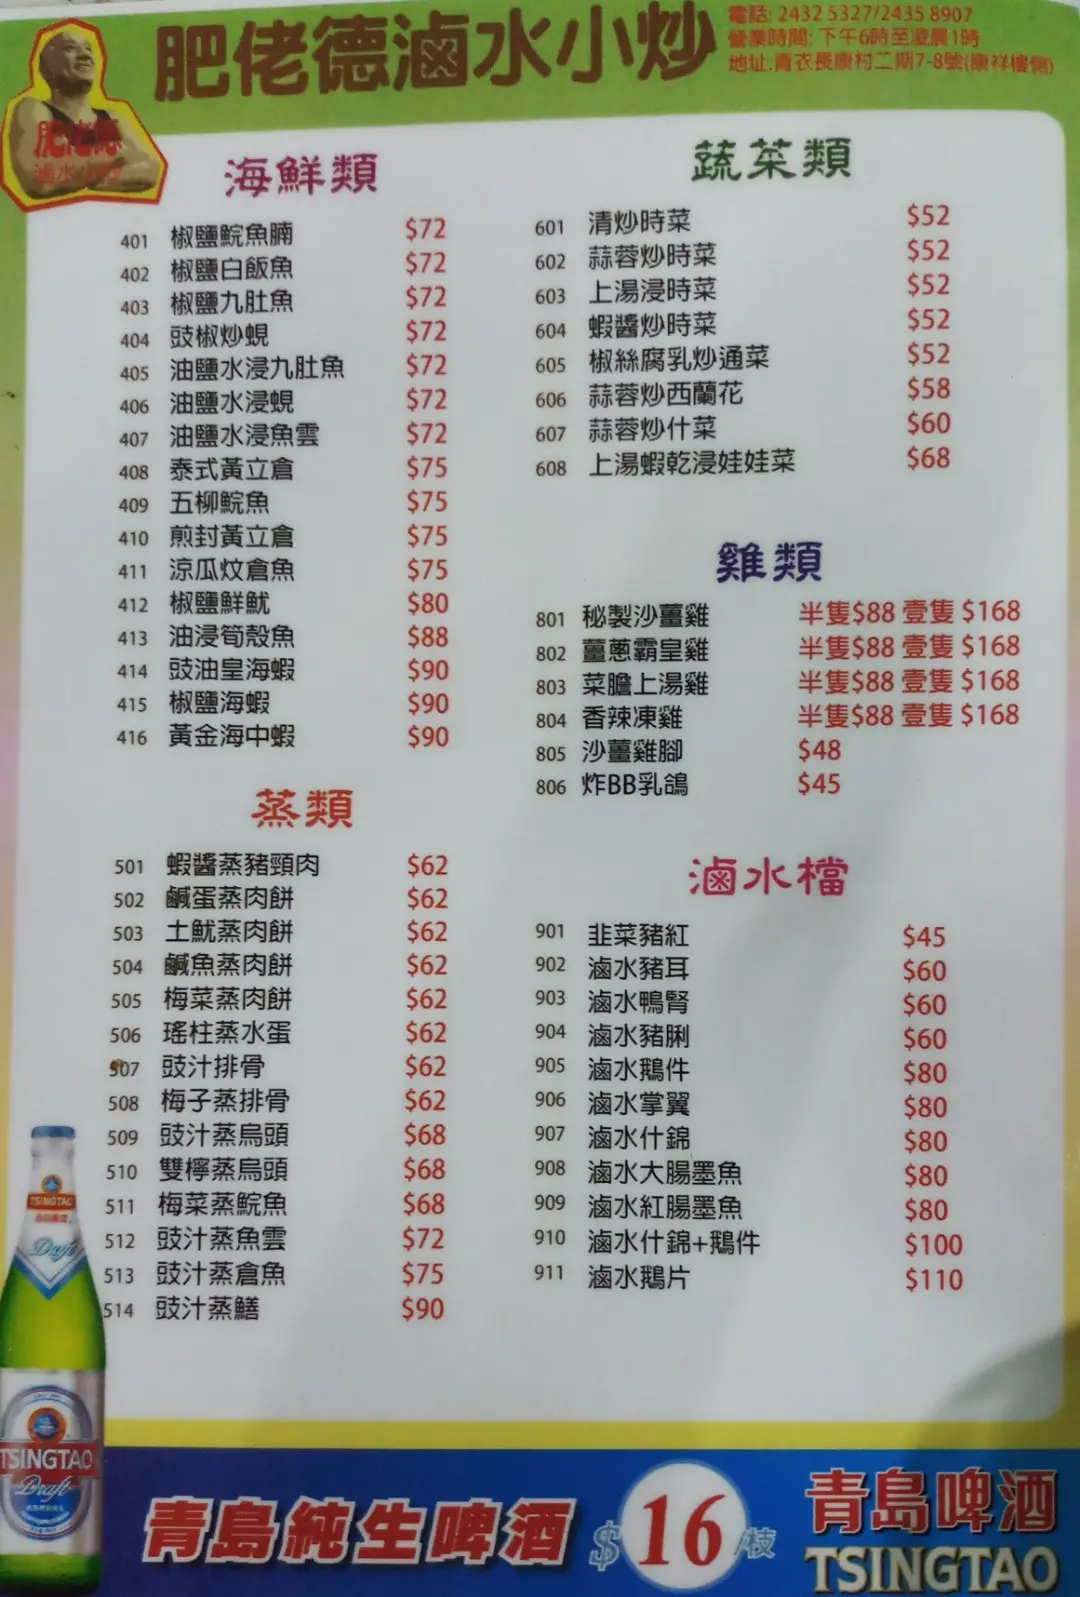 肥佬德滷水小炒
電話: 2432 5327/2435 8907
營業時間: 下午6時至凌晨1時
地址:青衣長康村二期7-8號(康祥樓側)
肥佬德
滷水小炒
海鮮類
401 椒鹽鯇魚腩 $72
402 椒鹽白飯魚 $72
403 椒鹽九肚魚 $72
404 豉椒炒蜆 $72
405 油鹽水浸九肚魚 $72
406 油鹽水浸蜆 $72
407 油鹽水浸魚雲 $72
408 泰式黃立倉 $75
409 五柳鯇魚 $75
410 煎封黃立倉 $75
411 涼瓜炆倉魚 $75
412 椒鹽鮮魷 $80
413 油浸筍殼魚 $88
414 豉油皇海蝦 $90
415 椒鹽海蝦 $90
416 黃金海中蝦 $90
蒸類
501 蝦醬蒸豬頸肉 $62
502 鹹蛋蒸肉餅 $62
503 土魷蒸肉餅 $62
504 鹹魚蒸肉餅 $62
505 梅菜蒸肉餅 $62
506 瑤柱蒸水蛋 $62
507 豉汁排骨 $62
508 梅子蒸排骨 $62
509 豉汁蒸烏頭 $68
510 雙檸蒸烏頭 $68
511 梅菜蒸鯇魚 $68
512 豉汁蒸魚雲 $72
513 豉汁蒸倉魚 $75
514 豉汁蒸鱔 $90
蔬菜類
601 清炒時菜 $52
602 蒜蓉炒時菜 $52
603 上湯浸時菜 $52
604 蝦醬炒時菜 $52
605 椒絲腐乳炒通菜 $52
606 蒜蓉炒西蘭花 $58
607 蒜蓉炒什菜 $60
608 上湯蝦乾浸娃娃菜 $68
雞類
801 秘製沙薑雞 半隻$88 壹隻 $168
802 薑蔥霸皇雞 半隻$88 壹隻 $168
803 菜膽上湯雞 半隻$88 壹隻 $168
804 香辣凍雞 半隻$88 壹隻 $168
805 沙薑雞腳 $48
806 炸BB乳鴿 $45
滷水檔
901 韭菜豬紅 $45
902 滷水豬耳 $60
903 滷水鴨腎 $60
904 滷水豬脷 $60
905 滷水鵝件 $80
906 滷水掌翼 $80
907 滷水什錦 $80
908 滷水大腸墨魚 $80
909 滷水紅腸墨魚 $80
910 滷水什錦+鵝件 $100
911 滷水鵝片 $110
TSINGTAO
Draft
TSINGTAO
Draft
青島純生啤酒 $16/枝
青島啤酒
TSINGTAO